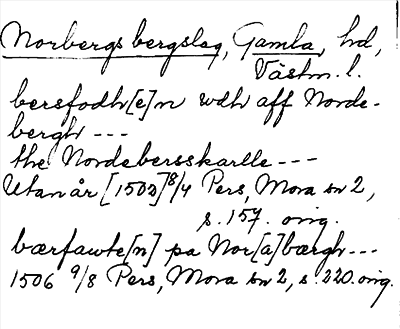 Norbergs bergslag, Gamla, hd,
Västm. l.
bersfodh[e]n wdh aff Norde-
bergh ---
the Nordebersskarlle ---
Utan år [1503] 8/4 Pers, Mora sn 2,
s. 157. orig.
bærfawte[n] pa Nor[a]bærgh ---
1506 9/8 Pers, Mora sn 2, s. 220. orig.